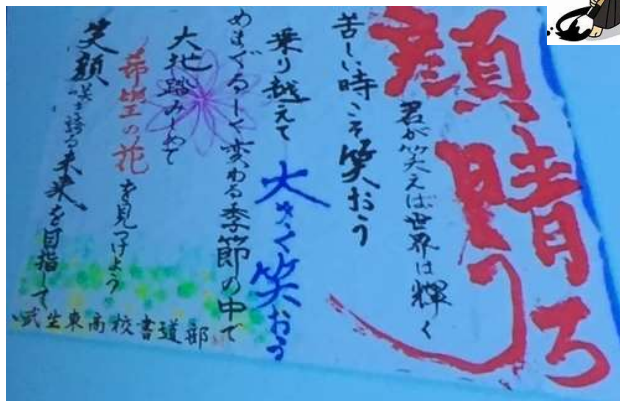 顔晴ろう
君が笑えば世界は輝く
苦しい時こそ笑おう
乗り越えて 大きく笑おう
めまぐるしく変わる季節の中で
大地踏みしめて
希望の花を見つけよう
笑顔咲き誇る未来を目指して
武生東高校書道部